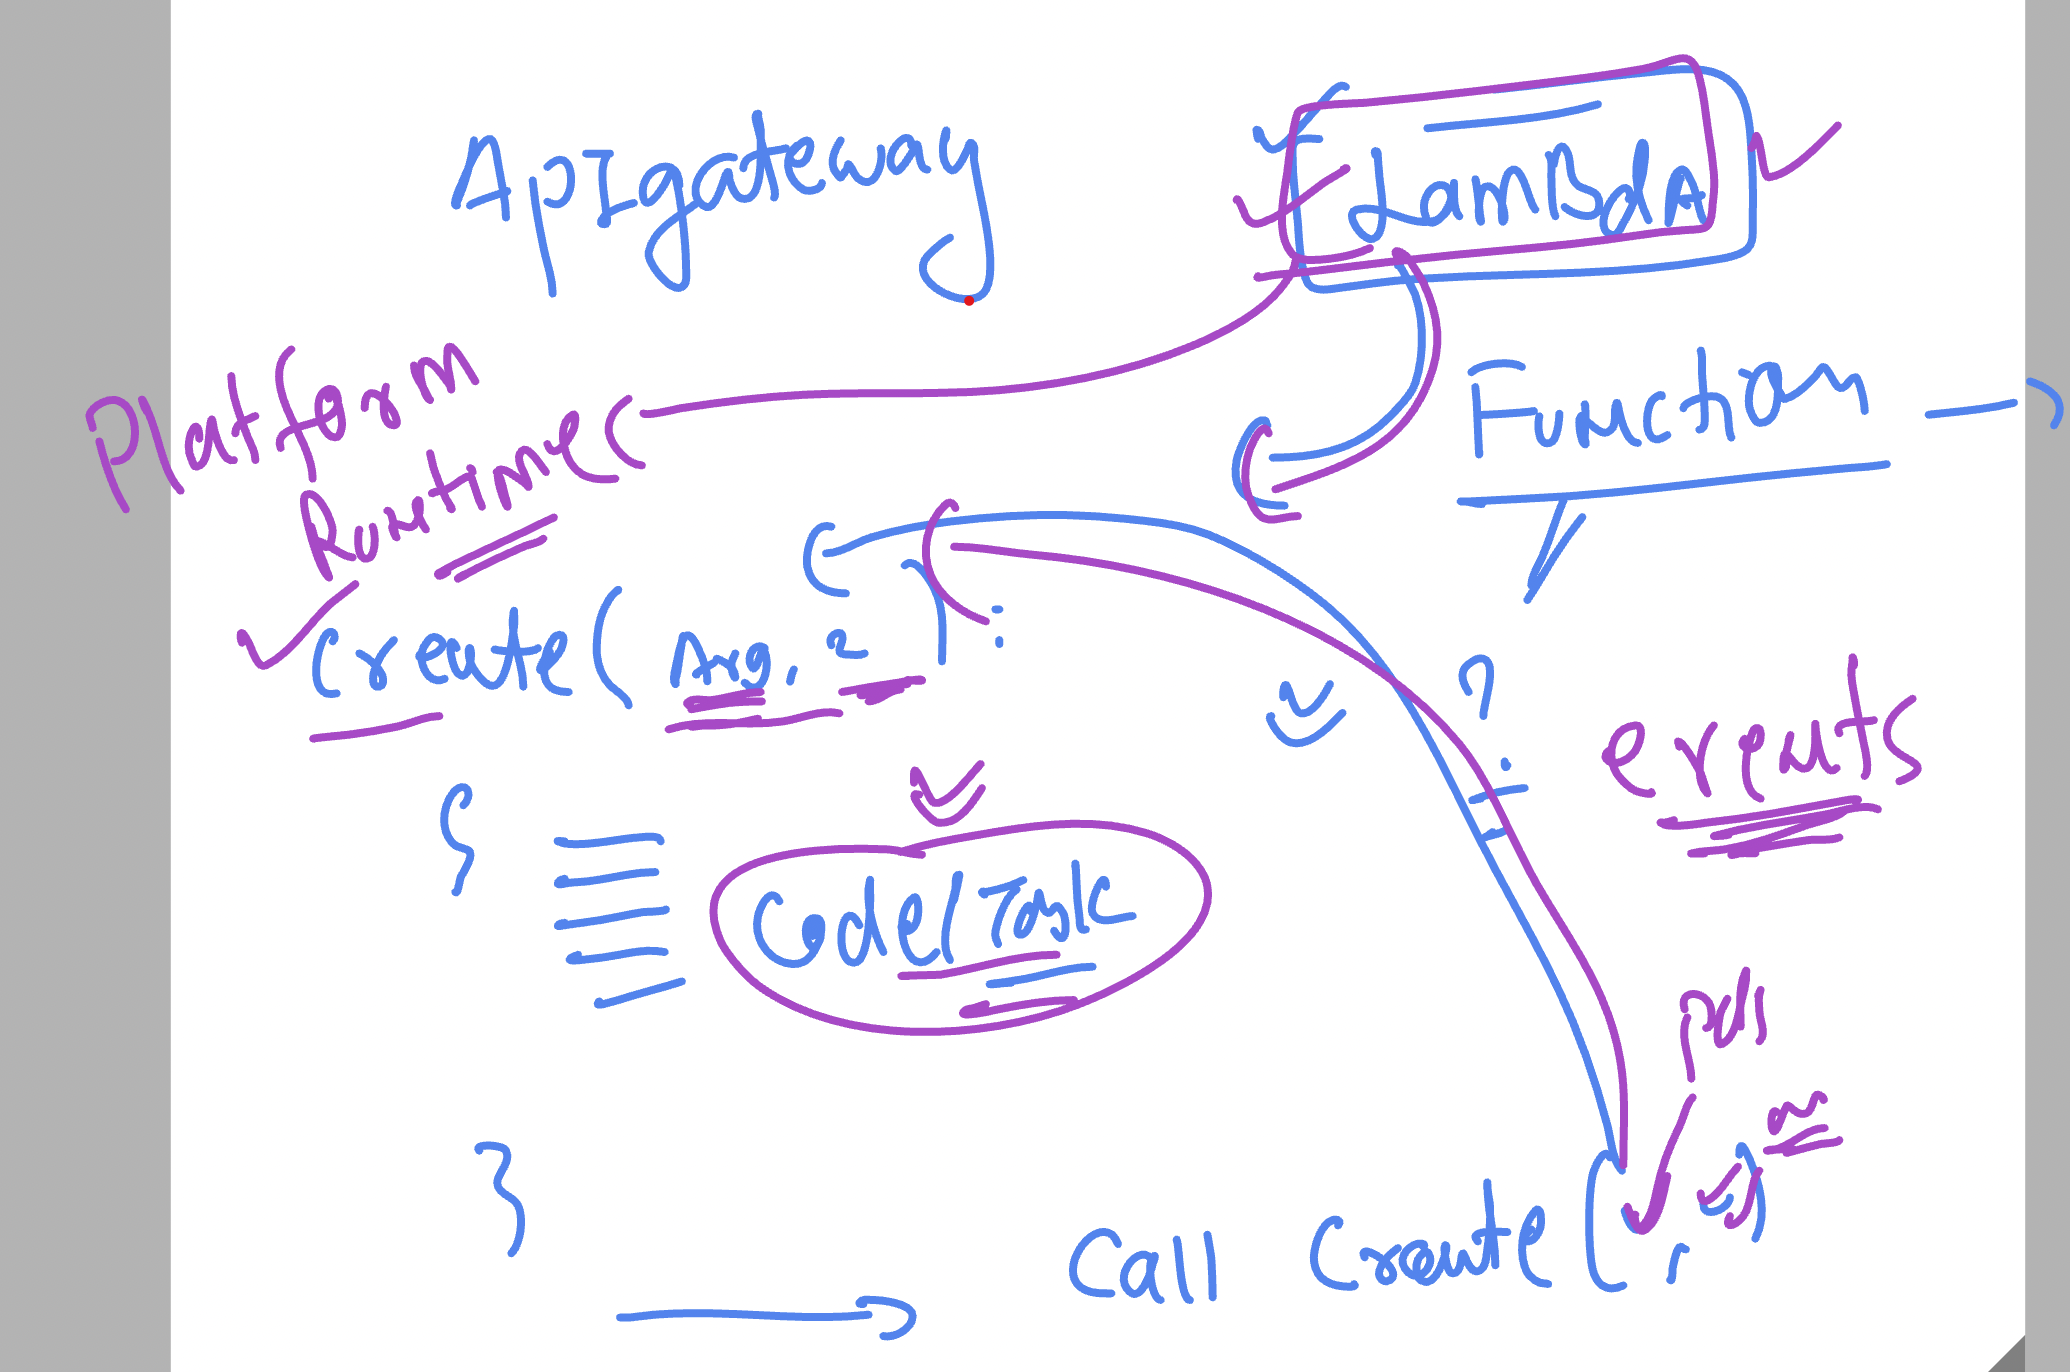 ApIgateway
LamBdA
Platform
Runtime
Function
Create(Arg, 2):
?
events
{
Code/Task
}
Call Create( , )